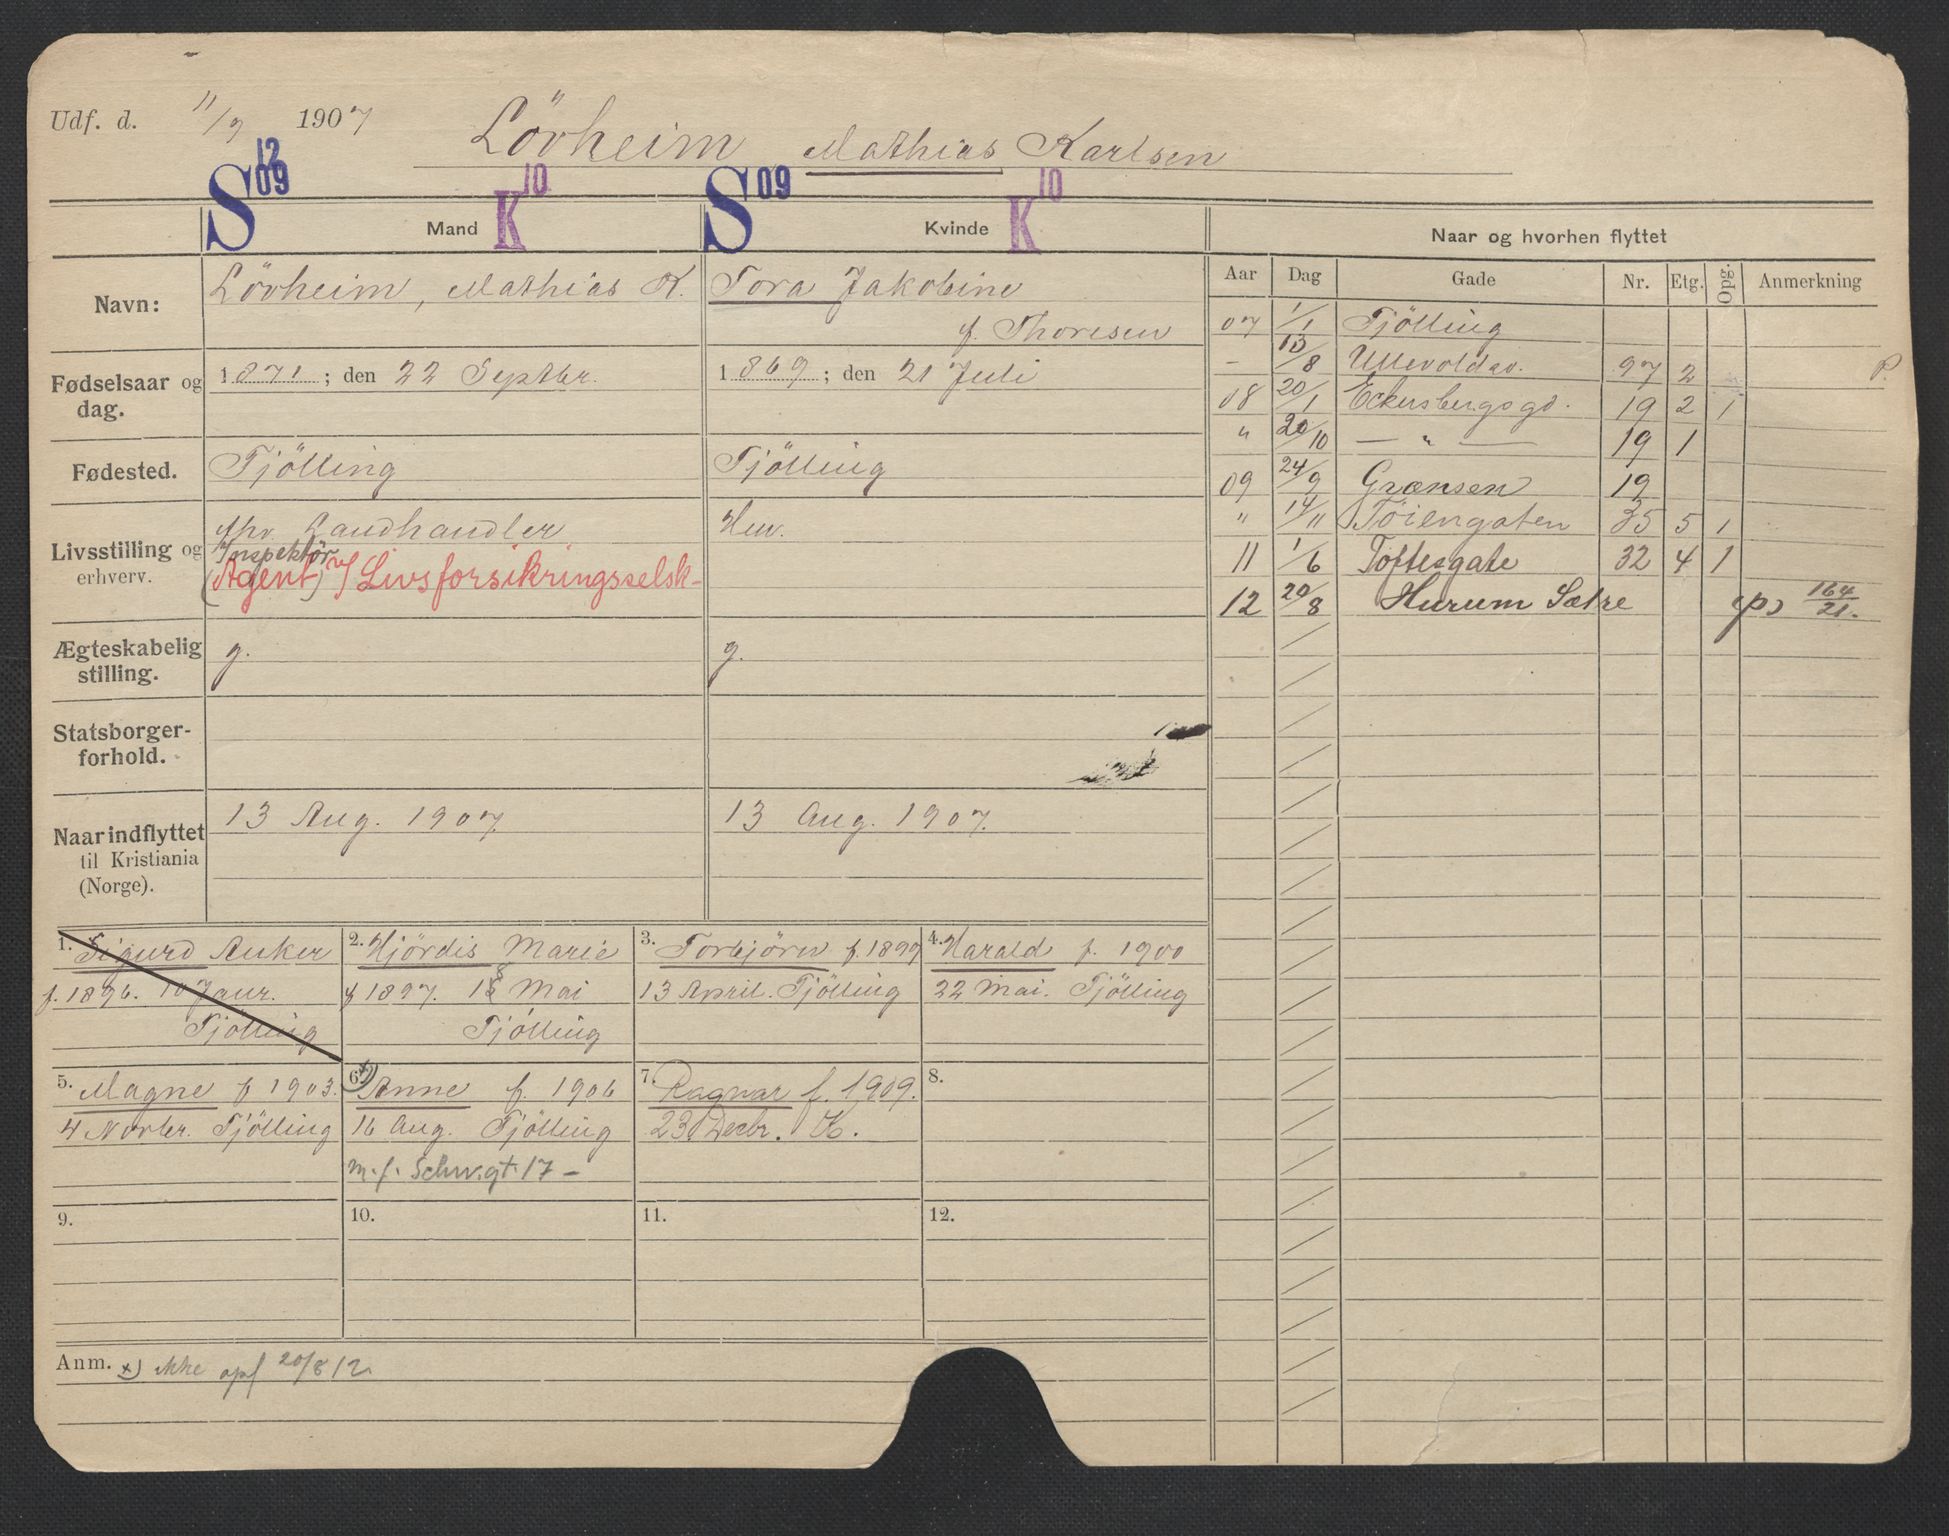 Udf. d. 11/9 1907 Lövheim Mathias Karlsen
S 09 12 K 10 S 09 K 10
Mand Kvinde
Navn: Lövheim, Mathias K. Tora Jakobine
f. Thoresen
Fødselsaar og dag. 1871; den 22 Septbr. 1869; den 21 Juli
Fødested. Tjölling Tjölling
Livsstilling og erhverv. fhv. Landhandler Hus.
Inspektör
(Agent) v/ Livsforsikringsselsk-
Ægteskabelig stilling. g. g.
Statsborger-forhold.
Naar indflyttet til Kristiania (Norge). 13 Aug. 1907. 13 Aug. 1907.
1. Sigurd Anker
f. 1896. 10 Janr.
Tjölling
2. Hjördis Marie
f 1897. 18 Mai
Tjölling
3. Torbjörn f. 1899
13 April. Tjölling
4. Harald f. 1900
22 Mai. Tjölling
5. Magne f 1903.
4 Novbr. Tjölling
6. x) Anne f. 1906
16 Aug. Tjölling
m.f. Schw.gt. 17 –
7. Ragnar f. 1909.
23 Decbr. K.
8.
9.
10.
11.
12.
Anm. x) ikke opf 20/8 12.
Naar og hvorhen flyttet
Aar Dag Gade Nr. Etg. Opg. Anmerkning
07 1/1 Tjölling
– 13/8 Ullevoldsv. 97 2 P.
08 20/1 Eckersbergsgd. 19 2 1
" 20/10 — " — 19 1
09 24/9 Grænsen 19
" 14/11 Töiengaten 35 5 1
11 1/6 Toftesgate 32 4 1
12 20/8 Hurum Sætre (p) 164/21.